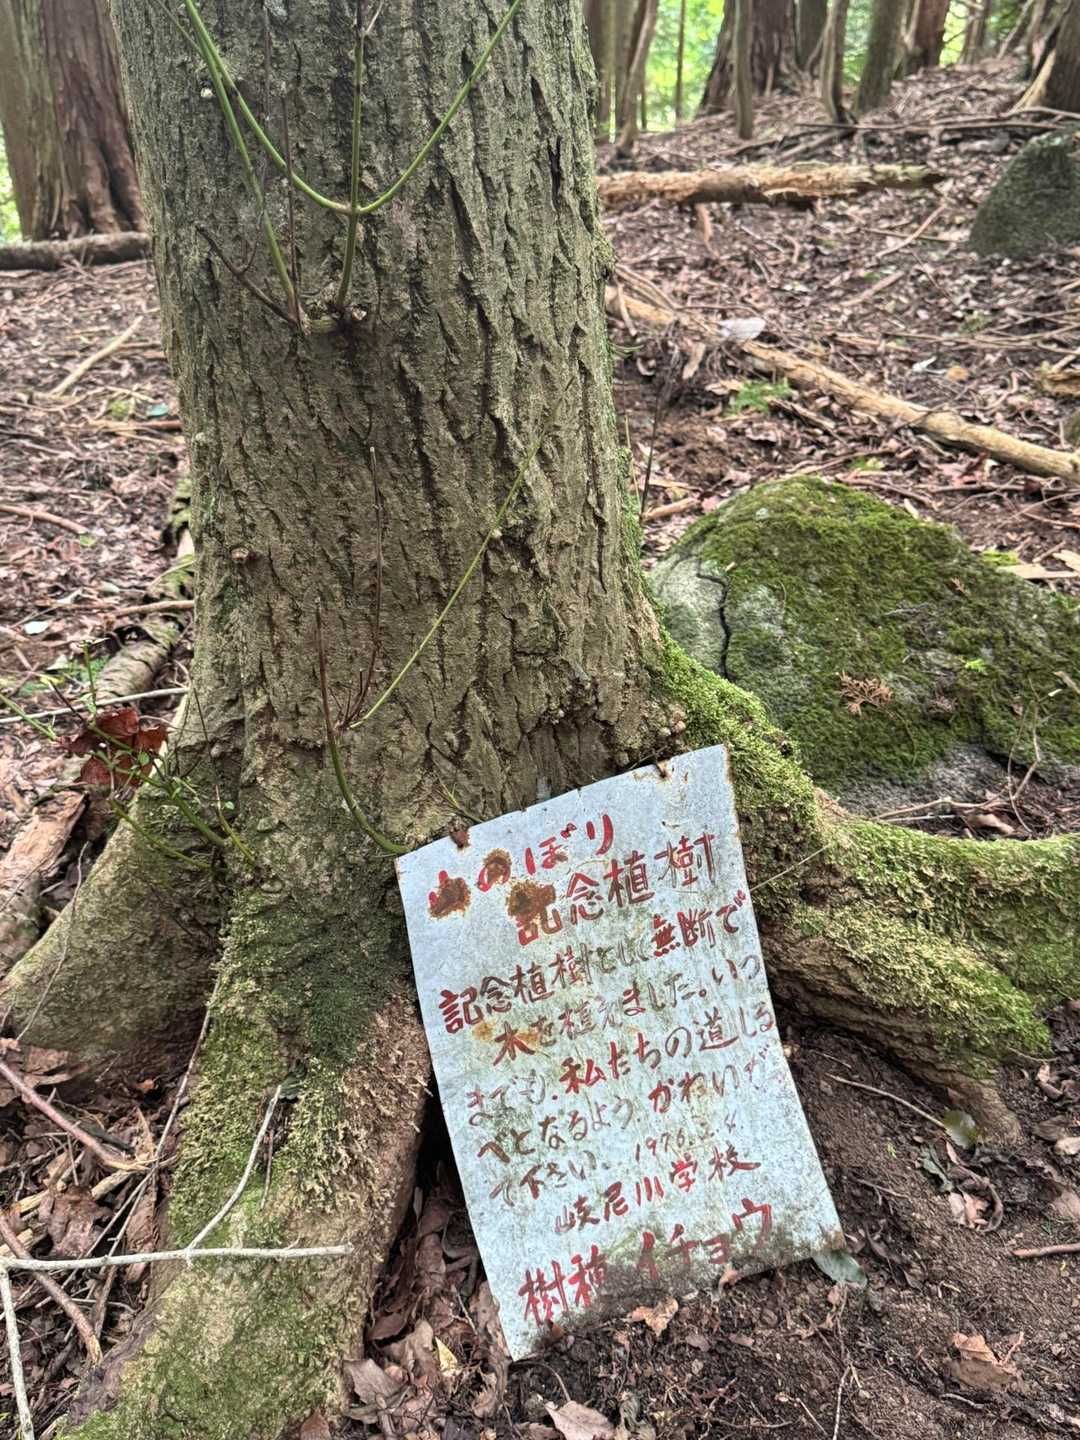 山のぼり
記念植樹
記念植樹として無断で
木を植えました。いつ
までも、私たちの道しる
べとなるよう、かわいがっ
て下さい。1976.2.4.
岐尼小学校
樹種 イチョウ